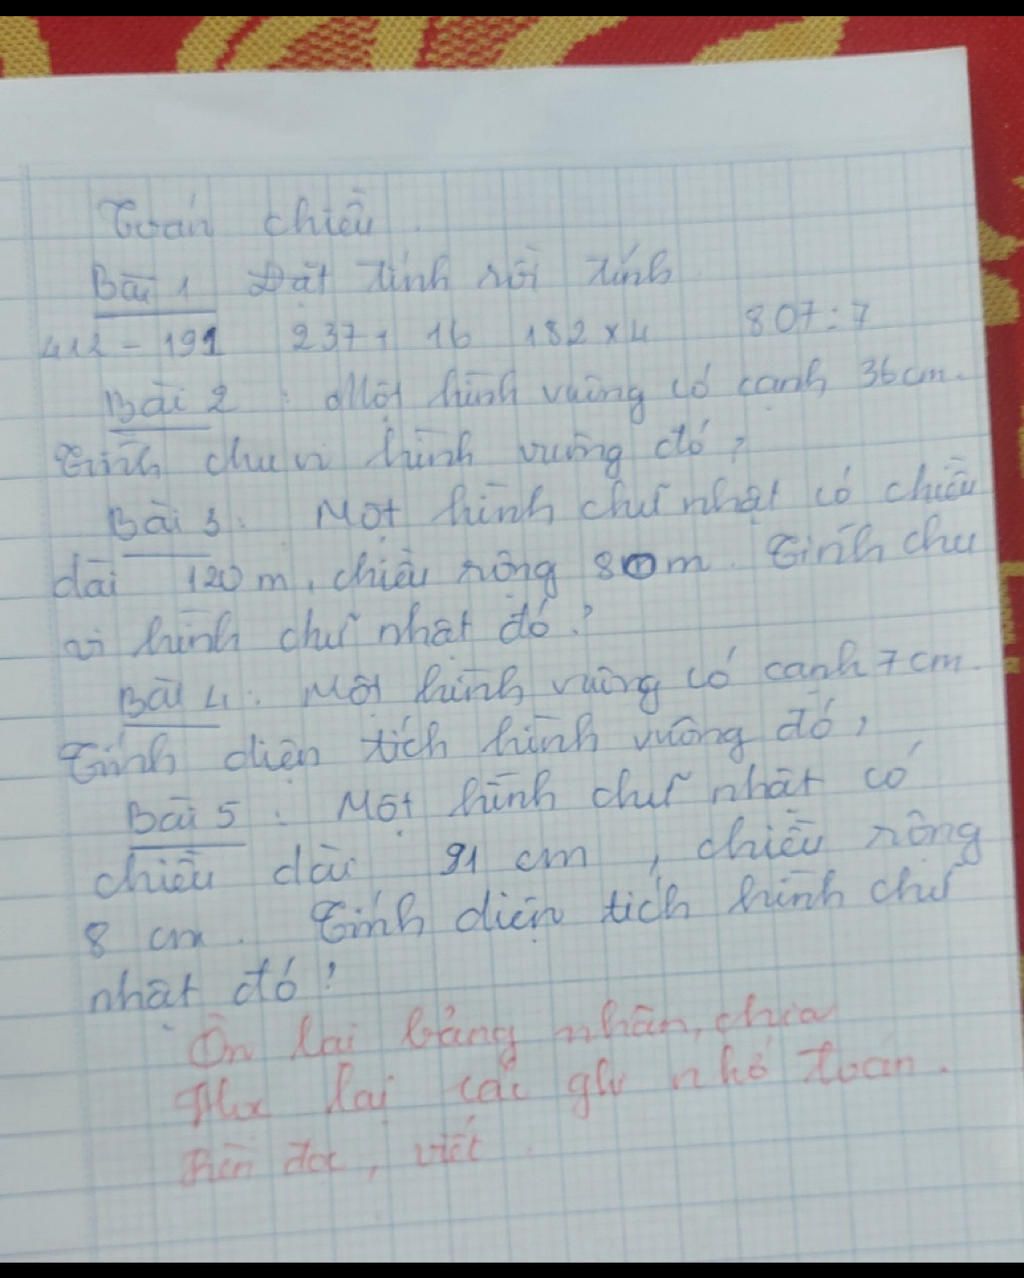 Toán chiều
Bài 1 Đặt tính rồi tính
412 - 191 237 + 16 182 x 4 807 : 7
Bài 2 : Một hình vuông có cạnh 36 cm.
Tính chu vi hình vuông đó ?
Bài 3 : Một hình chữ nhật có chiều
dài 120 m, chiều rộng 80 m. Tính chu
vi hình chữ nhật đó ?
Bài 4 : Một hình vuông có cạnh 7 cm.
Tính diện tích hình vuông đó ?
Bài 5 : Một hình chữ nhật có
chiều dài 91 cm, chiều rộng
8 cm. Tính diện tích hình chữ
nhật đó ?
Ôn lại bảng nhân, chia
lại các ghi nhớ toán.
Rèn đọc, viết.